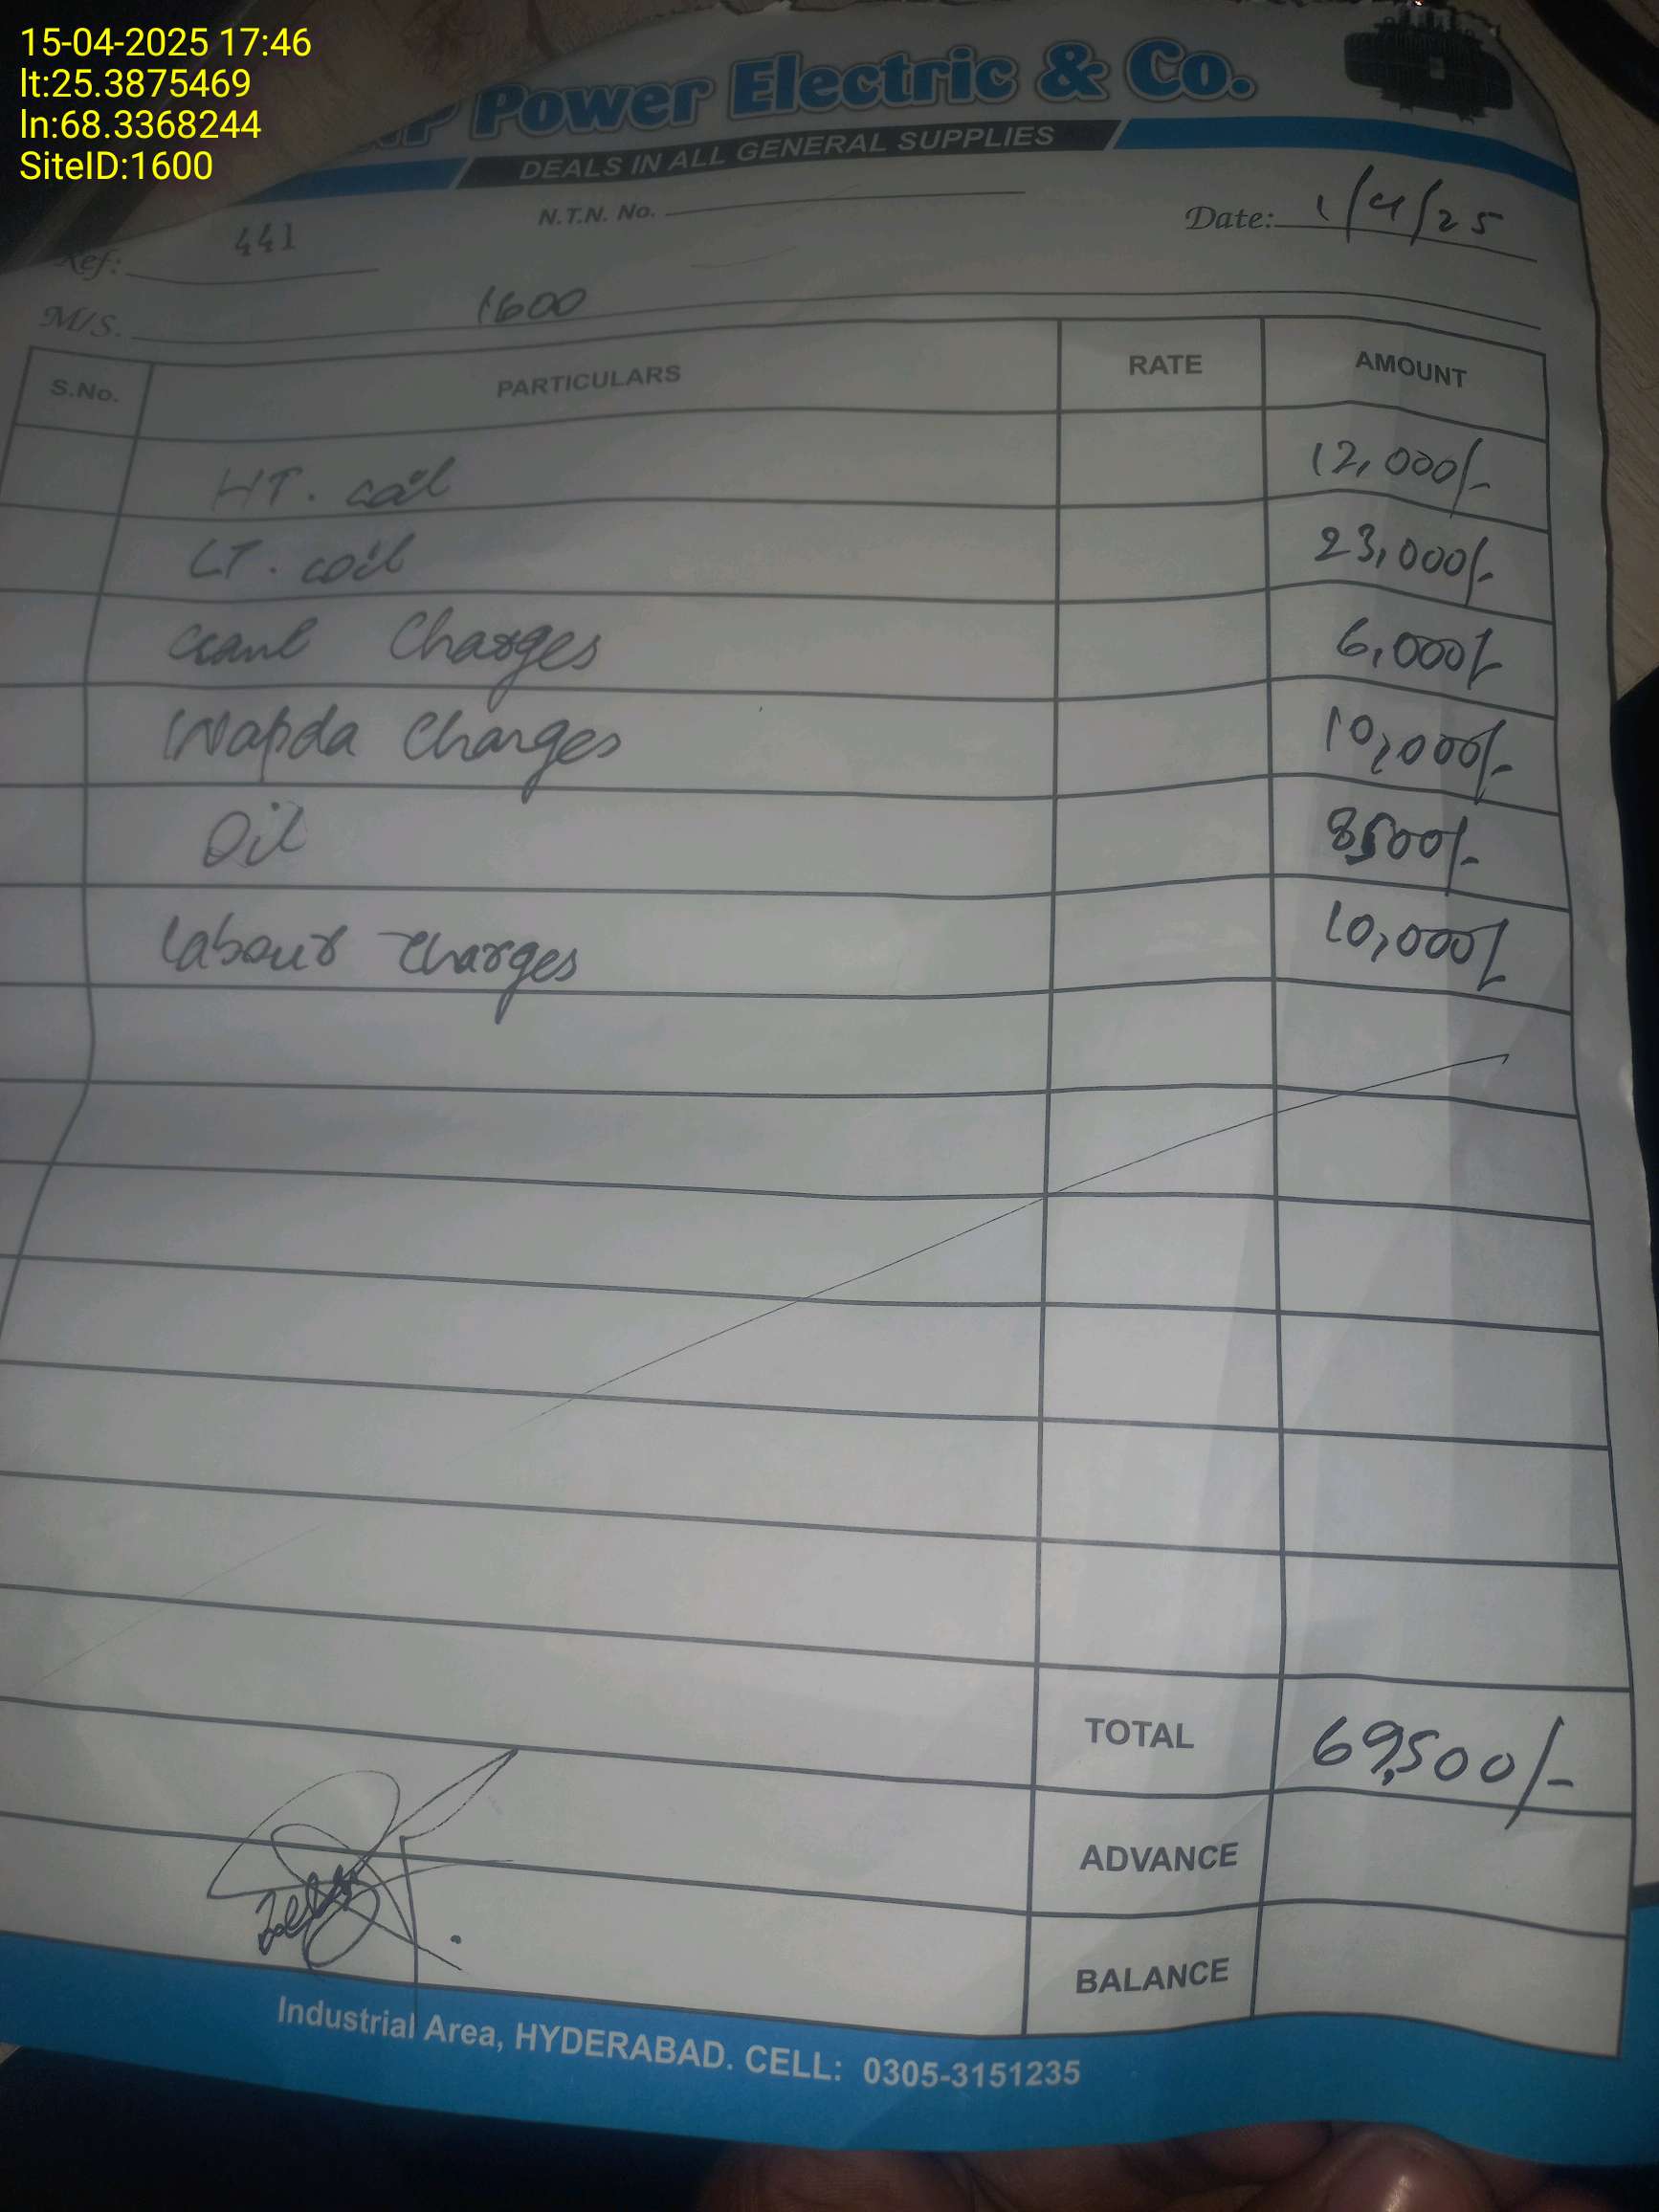 15-04-2025 17:46
lt:25.3875469
ln:68.3368244
SiteID:1600
Power Electric & Co.
DEALS IN ALL GENERAL SUPPLIES
N.T.N. No.
Date: 1/4/25
Ref: 441
M/S. 1600
S.No. PARTICULARS RATE AMOUNT
HT. coil 12,000/-
LT. coil 23,000/-
Crane Charges 6,000/-
Wapda Charges 10,000/-
Oil 8,500/-
Labour Charges 10,000/-
TOTAL 69,500/-
ADVANCE
BALANCE
Industrial Area, HYDERABAD. CELL: 0305-3151235